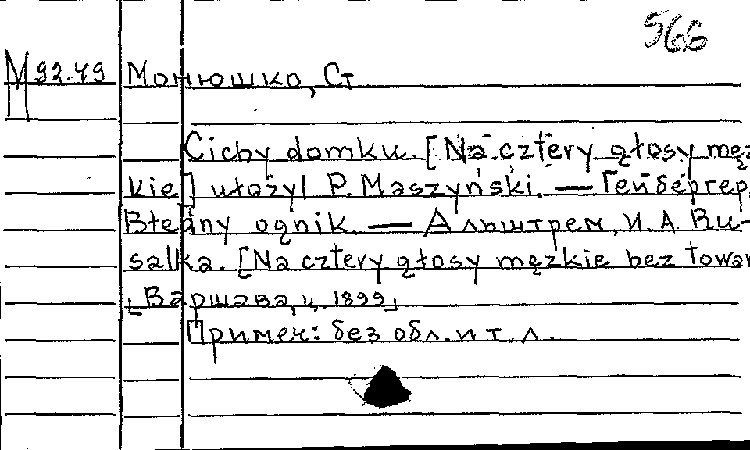 566
М 92.49 Монюшко, Ст
Cichy domku. [Na cztery głosy męz
kie] ułożył P. Maszyński. — Гейбергер,
Błędny ognik. — Альштрем, И. А. Ru-
salka. [Na cztery głosy męzkie bez towar
[Варшава, ц. 1899]
Примеч: без обл. и т. л.